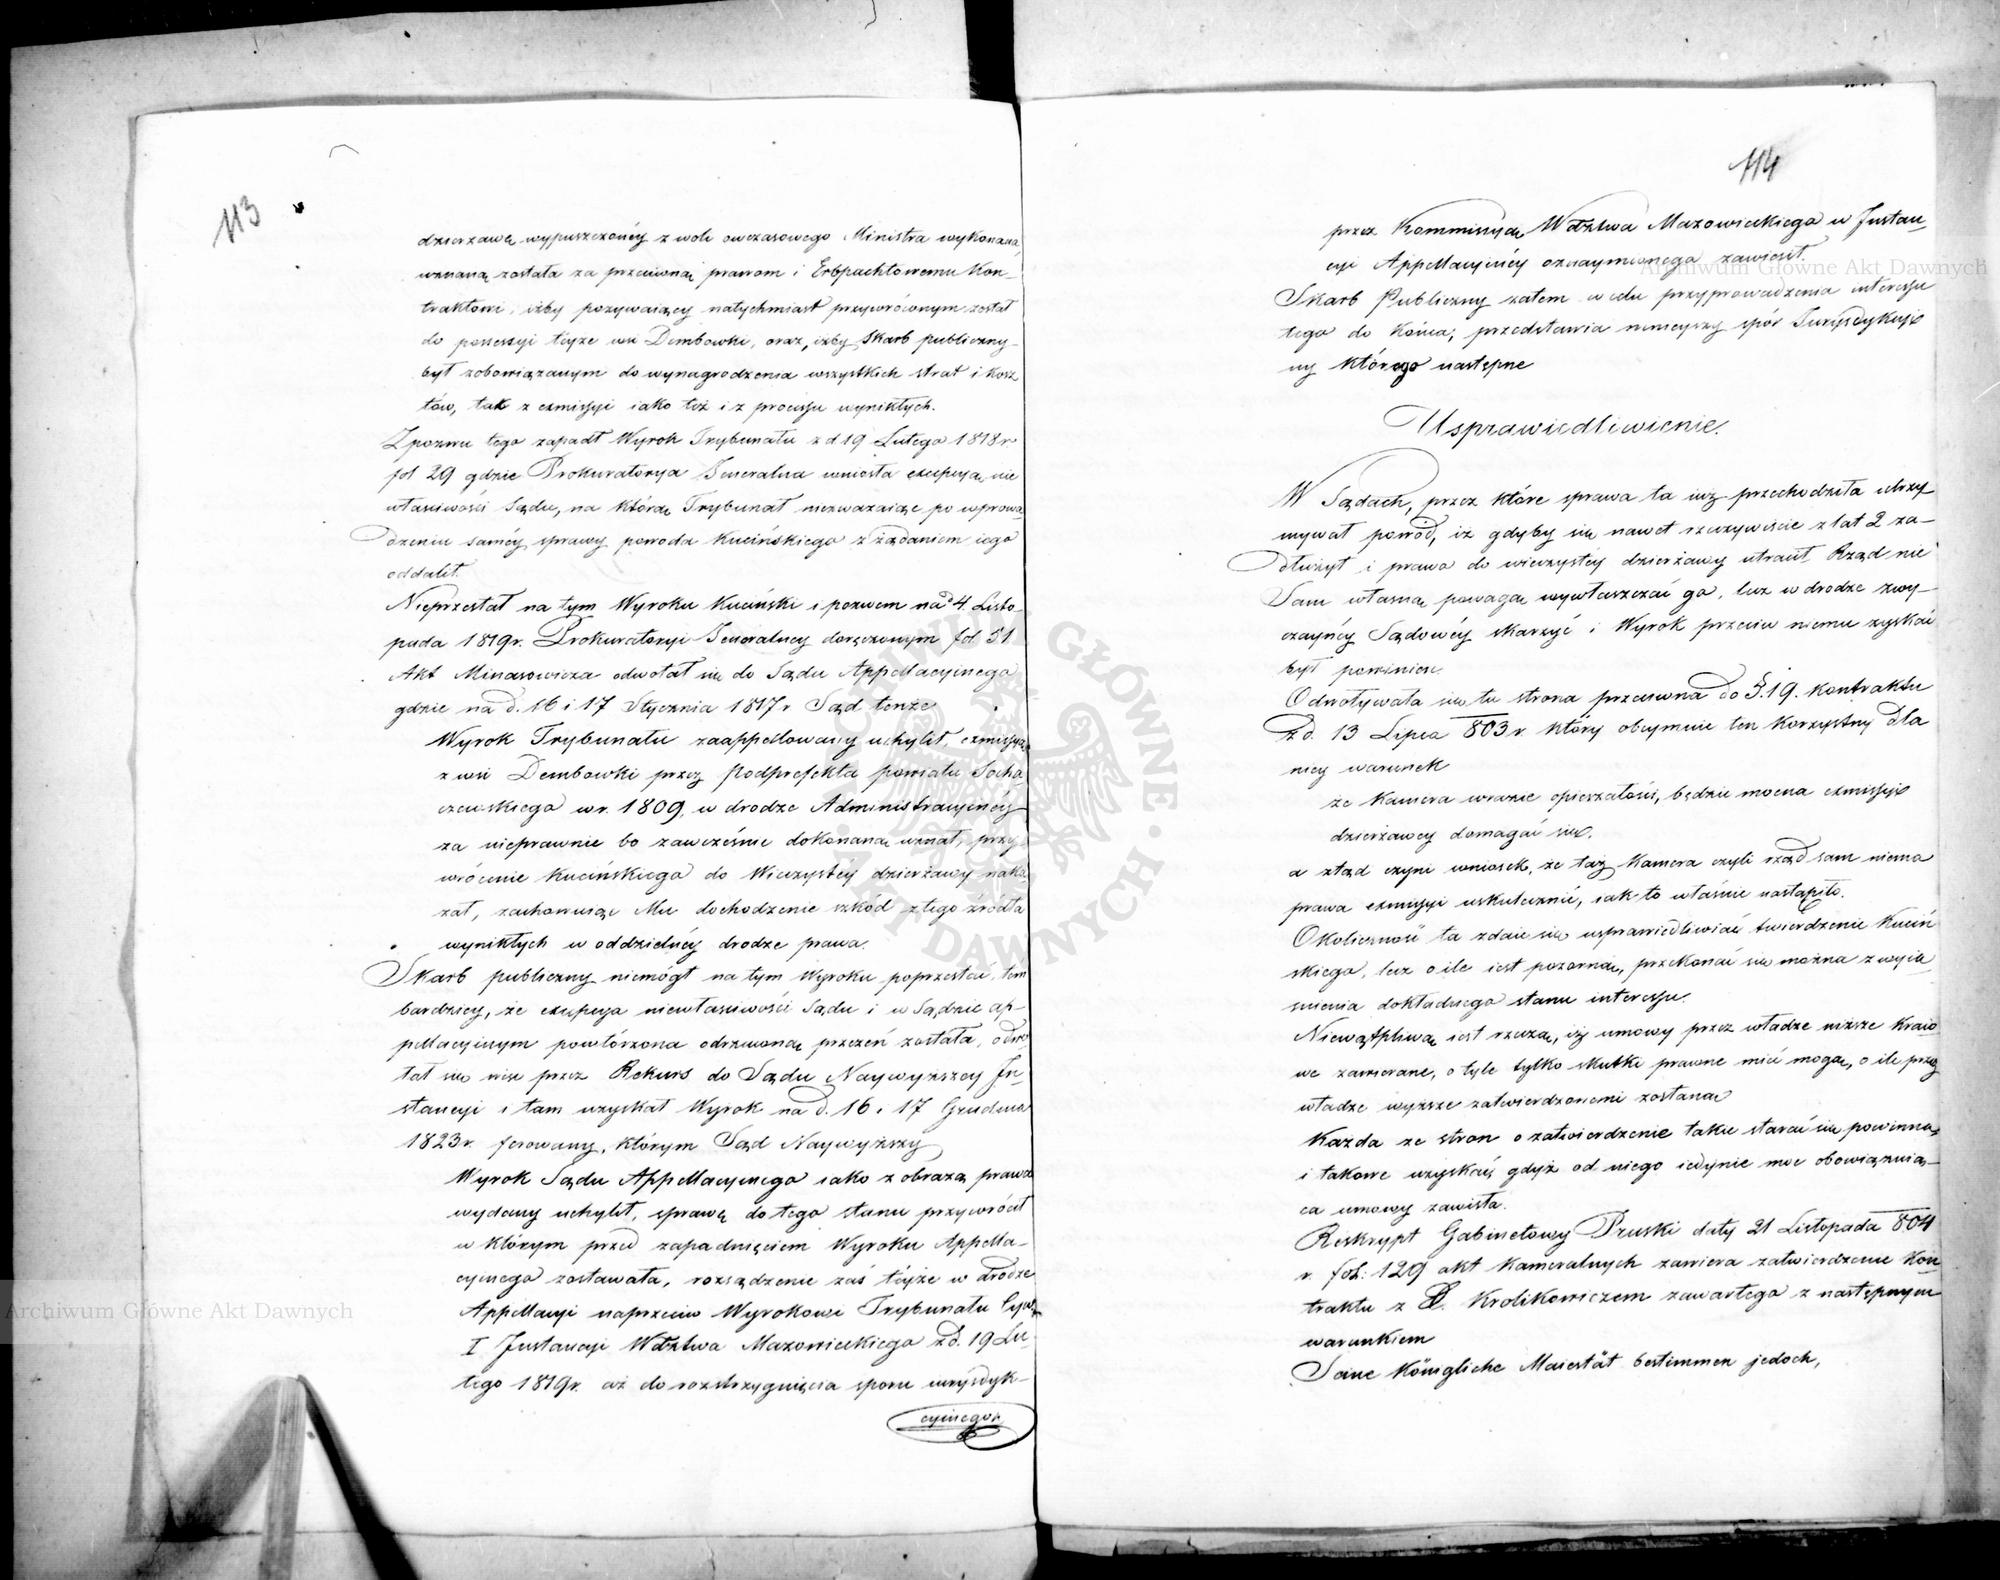 113
dzierzawę wypuszczonéy z woli owczasowego Ministra wykonaną
uznaną została za przeciwną prawom i Erbpachtowemu Kon-
traktowi, iżby pozywaiący natychmiast przywróconym został
do possessyi téyże wsi Dembowki, oraz, iżby Skarb publiczny
był zobowiązanym do wynagrodzenia wszystkich strat i kosz
tów, tak z exmissyi iako też i z processu wynikłych.
Z pozwu tego zapadł Wyrok Trybunału z d 19 Lutego 1818 r
fol 29 gdzie Prokuratorya Jeneralna wniosła excepcyą nie
właściwości Sądu, na którą Trybunał niezważaiąc po wprowa
dzeniu saméy sprawy powoda Kucińskiego z żądaniem iego
oddalił.
Nieprzestał na tym Wyroku Kuciński i pozwem na d 4. Listo-
pada 1819r. Prokuratoryi Jeneralney doręczonym fol 51
Akt Minasowicza odwołał się do Sądu Appellacyinego
gdzie na d. 16 i 17 Stycznia 1817 r Sąd tenże
Wyrok Trybunału zaappellowany uchylił, exmissyą
z wsi Dembowki przez Podprefekta powiatu Socha
czewskiego w r. 1809, w drodze Administracyinéy
za nieprawnie bo zawcześnie dokonaną uznał, przy
wrócenie Kucińskiego do Wieczystéy dzierżawy naka
zał, zachowuiąc Mu dochodzenie szkód z tego źródła
wynikłych w oddzielnéy drodze prawa.
Skarb publiczny niemógł na tym Wyroku poprzestać, tem
bardziey, że excepcya niewłaściwości Sądu i w Sądzie ap-
pellacyinym powtórzona odrzuconą przezeń została, odwo
łał się więc przez Rekurs do Sądu Naywyższey In-
stancyi i tam uzyskał Wyrok na d. 16 i 17 Grudnia
1823 r. ferowany, którym Sąd Naywyższy
Wyrok Sądu Appellacyinego iako z obrazą prawa
wydany uchylił, sprawę do tego stanu przywrócił
w którym przed zapadnięciem Wyroku Appella-
cyinego zostawała, rozsądzenie zaś téyże w drodze
Appellacyi naprzeciw Wyrokowi Trybunału Cyw:
I Instancyi Wdztwa Mazowieckiego z d. 19 Lu-
tego 1819r. aż do rozstrzygnięcia sporu iurysdyk-
cyinego
114
przez Kommissyą Wdztwa Mazowieckiego w Instan-
cyi Appellacyinéy oznaymionego zawiesił.
Skarb Publiczny zatem w celu przyprowadzenia interessu
tego do końca, przedstawia ninieyszy spór Jurysdykcyi
ny którego następne
Usprawiedliwienie.
W Sądach, przez które sprawa ta iuż przechodziła utrzy
mywał powód, iż gdyby się nawet rzeczywiście z lat 2 za-
dłużył i prawo do wieczystéy dzierżawy utracił Rząd nie
Sam własną powagą wywłaszczać go, lecz w drodze zwy-
czaynéy Sądowéy skarżyć i Wyrok przeciw niemu zyskać
był powinien.
Odwoływała się tu strona przeciwna do §. 19. kontraktu
z d. 13 Lipca 803 r. który obeymuie ten korzystny dla
niey warunek
że Kamera wrazie opieszałości, będzie mocna exmissyi
dzierżawcy domagać się.
a ztąd czyni wniosek, że taż Kamera czyli rząd sam niema
prawa exmissyi uskutecznić, iak to właśnie nastąpiło.
Okoliczność ta zdaie się usprawiedliwiać twierdzenie Kuciń
skiego, lecz o ile iest pozorną, przekonać się można z wyia
śnienia dokładnego stanu interessu.
Niewątpliwą iest rzeczą, iż umowy przez władze niższe kraio
we zawierane, o tyle tylko skutki prawne mieć mogą, o ile przez
władze wyższe zatwierdzonemi zostaną
Każda ze stron o zatwierdzenie takie starać się powinna,
i takowe uzyskać, gdyż od niego iedynie moc obowiązuią-
ca umowy zawisła.
Reskrypt Gabinetowy Pruski daty 21 Listopada 804
r. fol: 129 akt Kameralnych zawiera zatwierdzenie kon
traktu z P. Krolikowiczem zawartego z następnym
warunkiem
Seine Königliche Maiestät bestimmen jedoch,
Archiwum Główne Akt Dawnych
Archiwum Główne Akt Dawnych
ARCHIWUM GŁÓWNE AKT DAWNYCH